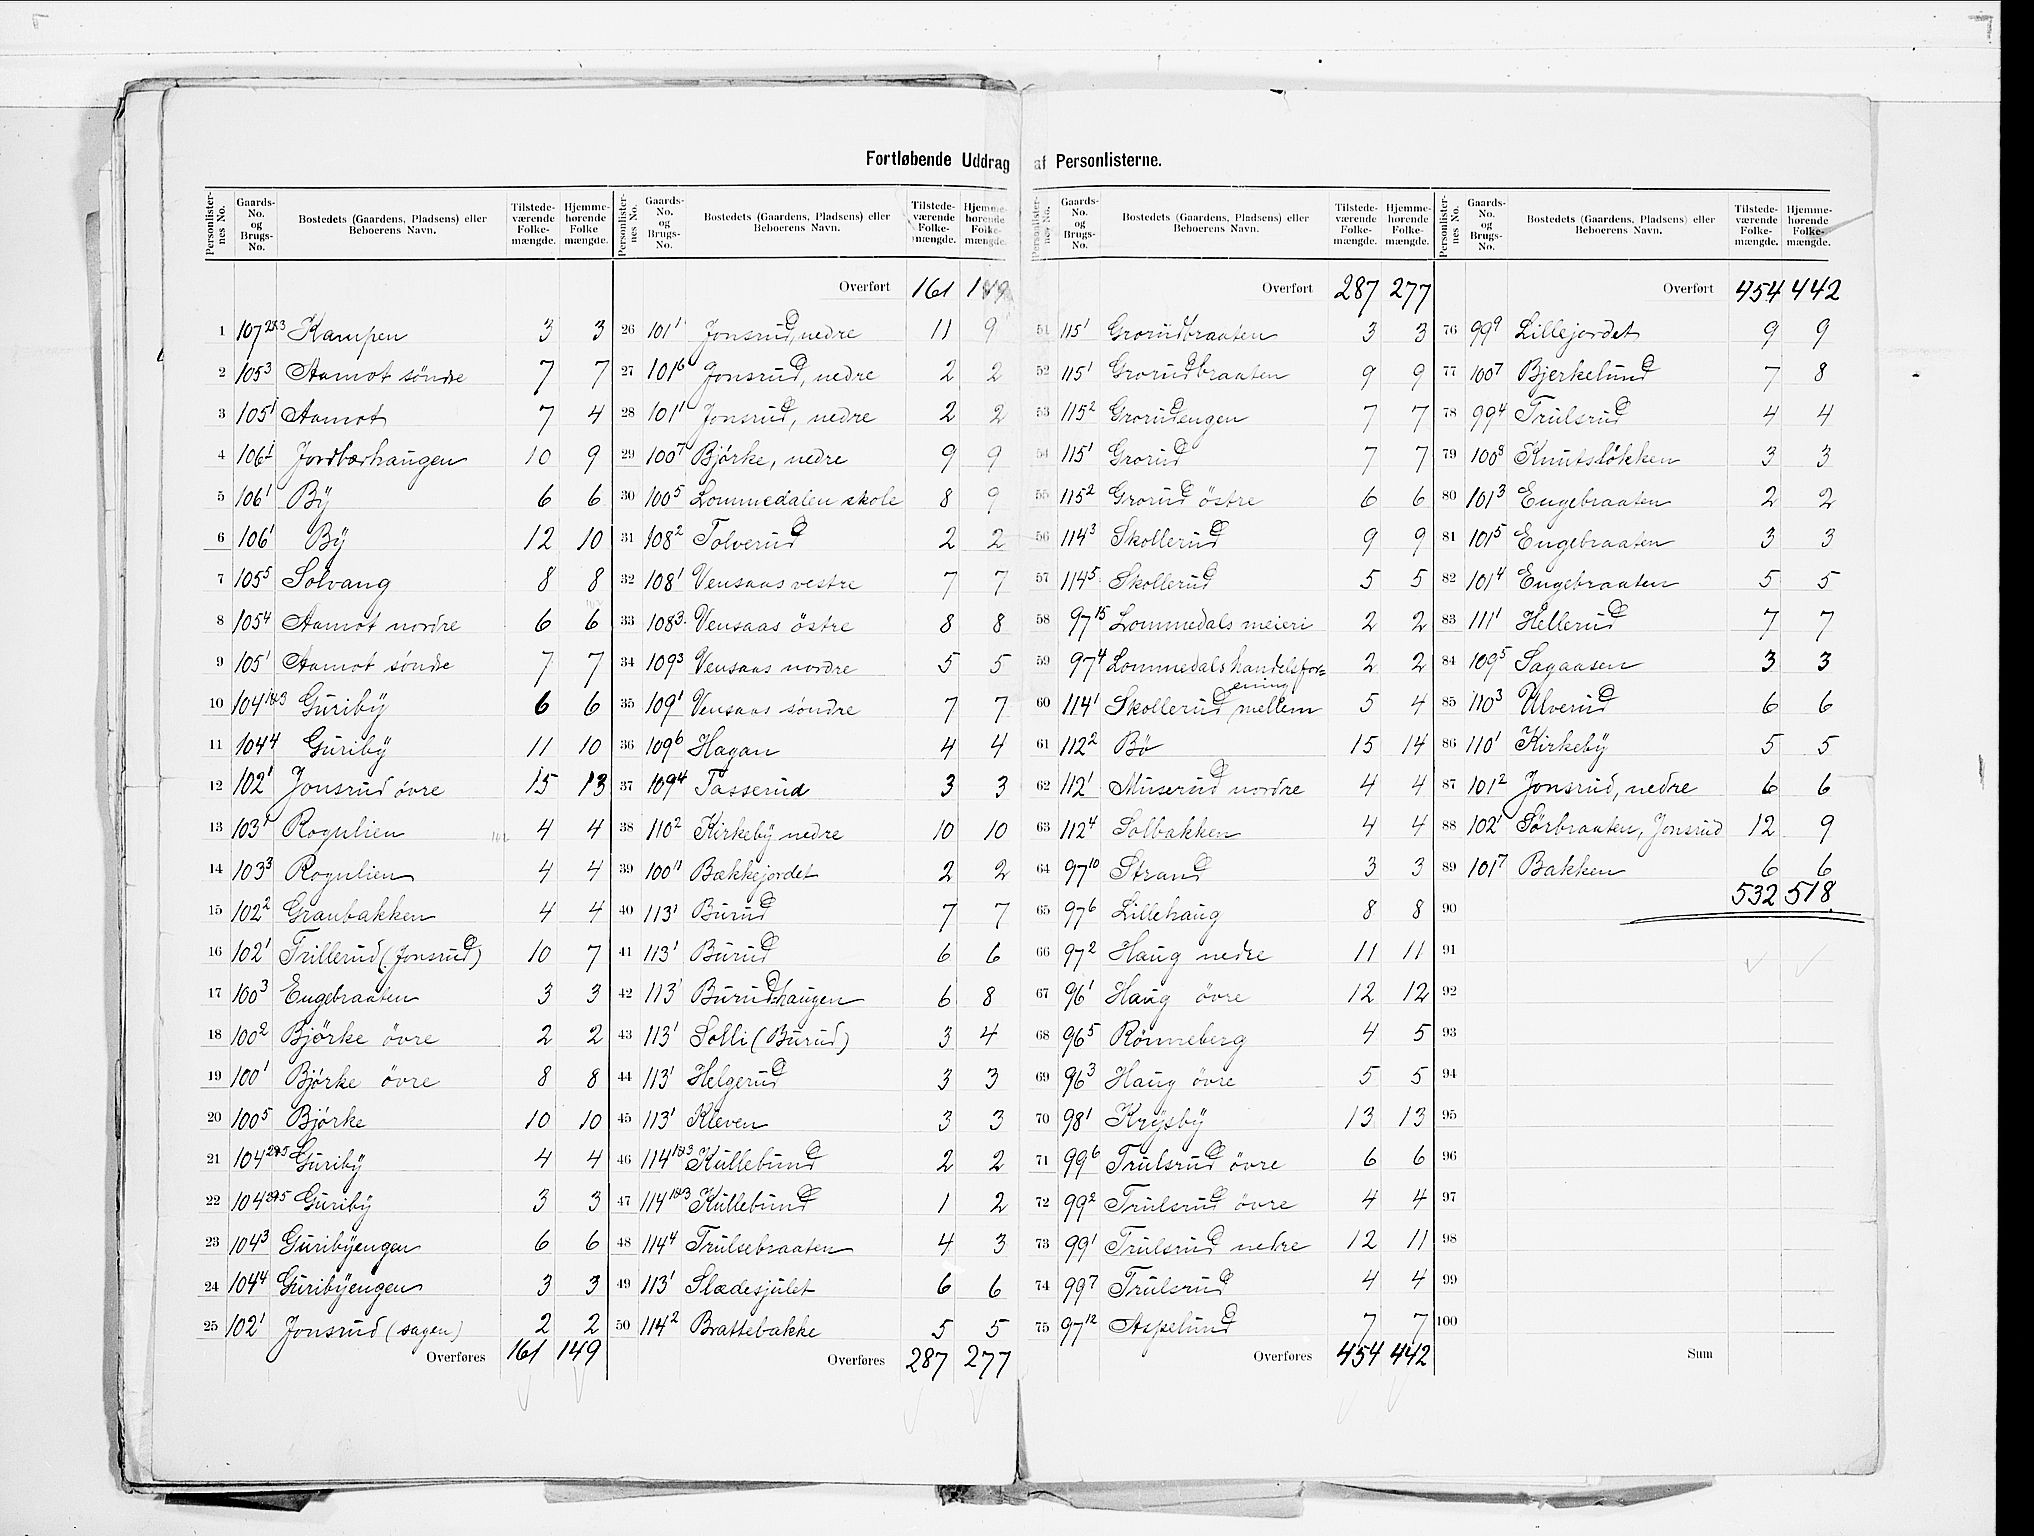 Fortløbende Uddrag af Personlisterne.
Personlister-nes No. Gaards-No. og Brugs-No. Bostedets (Gaardens, Pladsens) eller Beboerens Navn. Tilstede-værende Folke-mængde. Hjemme-hørende Folke mængde.
1 107 2&3 Kampen 3 3
2 105 3 Aamot söndre 7 7
3 105 1 Aamot 7 4
4 106 1 Jordbærhaugen 10 9
5 106 1 By 6 6
6 106 1 By 12 10
7 105 5 Solvang 8 8
8 105 4 Aamot nordre 6 6
9 105 1 Aamot søndre 7 7
10 104 1&3 Guriby 6 6
11 104 4 Guriby 11 10
12 102 1 Jonsrud øvre 15 13
13 103 1 Rogulien 4 4
14 103 3 Rogulien 4 4
15 102 2 Granbakken 4 4
16 102 1 Trillerud (Jonsrud) 10 7
17 100 3 Engebraaten 3 3
18 100 2 Bjørke övre 2 2
19 100 1 Bjørke övre 8 8
20 100 5 Bjørke 10 10
21 104 2&5 Guriby 4 4
22 104 2&5 Guriby 3 3
23 104 3 Guribyengen 6 6
24 104 4 Guribyengen 3 3
25 102 1 Jonsrud (sagen) 2 2
Overføres 161 149
Personlister-nes No. Gaards-No. og Brugs-No. Bostedets (Gaardens, Pladsens) eller Beboerens Navn. Tilstede-værende Folke-mængde. Hjemme-hørende Folke-mængde.
Overført 161 149
26 101 1 Jonsrud, nedre 11 9
27 101 6 Jonsrud, nedre 2 2
28 101 1 Jonsrud, nedre 2 2
29 100 7 Bjørke, nedre 9 9
30 100 5 Lommedalen skole 8 9
31 108 2 Tolverud 2 2
32 108 1 Vensaas vestre 7 7
33 108 3 Vensaas östre 8 8
34 109 3 Vensaas nordre 5 5
35 109 1 Vensaas søndre 7 7
36 109 6 Hagan 4 4
37 109 4 Tasserud 3 3
38 110 2 Kirkeby nedre 10 10
39 100 11 Bakkejordet 2 2
40 113 1 Burud 7 7
41 113 1 Burud 6 6
42 113 1 Burudhaugen 6 8
43 113 1 Solli (Burud) 3 4
44 113 1 Helgerud 3 3
45 113 1 Kleven 3 3
46 114 1&3 Kullebund 2 2
47 114 1&3 Kullebund 1 2
48 114 4 Trulsebraaten 4 3
49 113 1 Slædesjulet 6 6
50 114 2 Brattebakke 5 5
Overføres 287 277
Personlister-nes No. Gaards-No. og Brugs-No. Bostedets (Gaardens, Pladsens) eller Beboerens Navn. Tilstede-værende Folke-mængde. Hjemme-hørende Folke-mængde.
Overført 287 277
51 115 1 Grorudbraaten 3 3
52 115 1 Grorudbraaten 9 9
53 115 2 Grorudengen 7 7
54 115 1 Grorud 7 7
55 115 2 Grorud östre 6 6
56 114 3 Skollerud 9 9
57 114 5 Skollerud 5 5
58 97 15 Lommedals meieri 2 2
59 97 4 Lommedals handelsforening 2 2
60 114 1 Skollerud mellem 5 4
61 112 2 Bø 15 14
62 112 1 Muserud nordre 4 4
63 112 4 Solbakken 4 4
64 97 10 Strand 3 3
65 97 6 Lillehaug 8 8
66 97 2 Haug nedre 11 11
67 96 1 Haug övre 12 12
68 96 5 Rönneberg 4 5
69 96 3 Haug övre 5 5
70 98 1 Krysby 13 13
71 99 6 Trulsrud övre 6 6
72 99 2 Trulsrud övre 4 4
73 99 1 Trulsrud nedre 12 11
74 99 7 Trulsrud 4 4
75 97 12 Aspelund 7 7
Overføres 454 442
Personlister-nes No. Gaards-No. og Brugs-No. Bostedets (Gaardens, Pladsens) eller Beboerens Navn. Tilstede-værende Folke-mængde. Hjemme-hørende Folke-mængde.
Overført 454 442
76 99 9 Lillejordet 9 9
77 100 7 Bjerkelund 7 8
78 99 4 Trulsrud 4 4
79 100 8 Knutsløkken 3 3
80 101 3 Engebraaten 2 2
81 101 5 Engebraaten 3 3
82 101 4 Engebraaten 5 5
83 111 1 Hellerud 7 7
84 109 5 Sagaasen 3 3
85 110 3 Ulverud 6 6
86 110 1 Kirkeby 5 5
87 101 2 Jonsrud, nedre 6 6
88 102 1 Sörbraaten, Jonsrud 12 9
89 101 7 Bakken 6 6
532 518
90
91
92
93
94
95
96
97
98
99
100
Sum